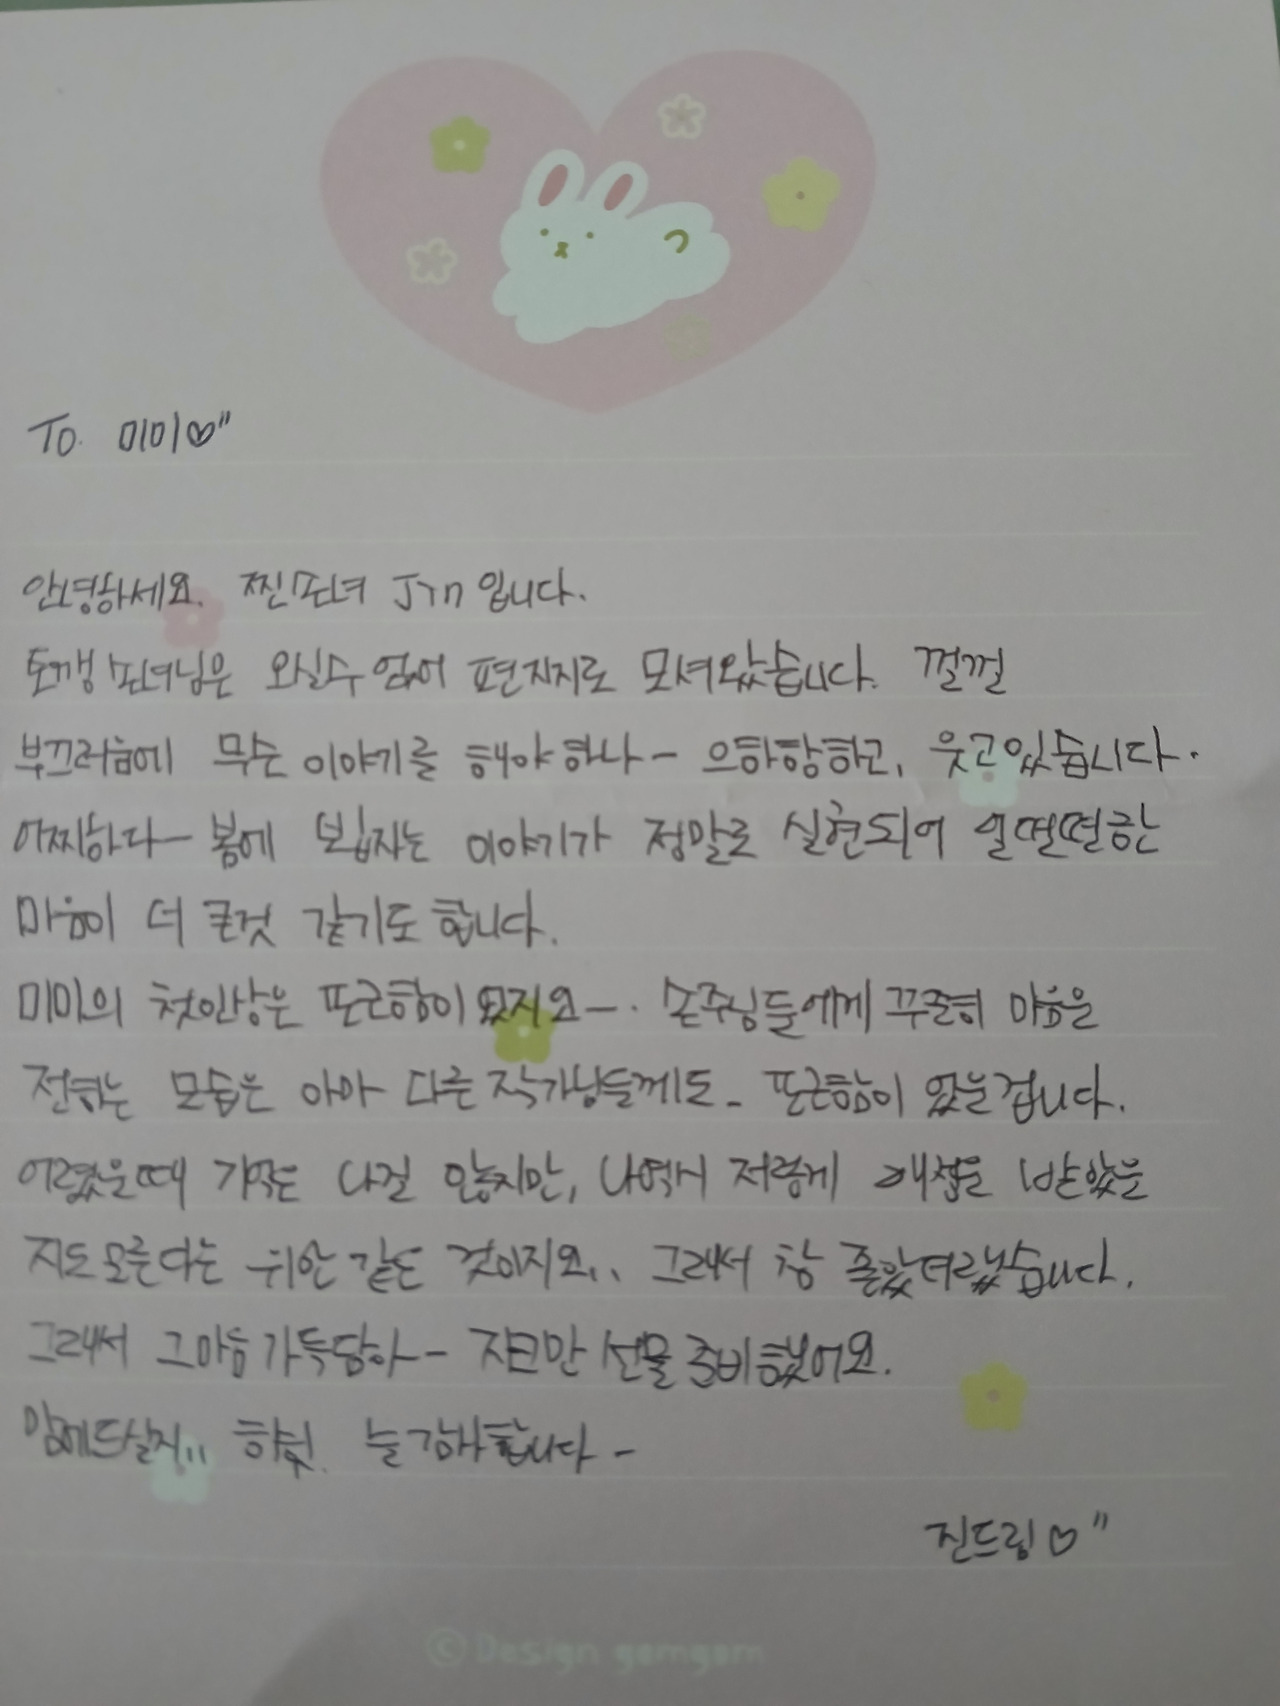 To. 미미♡"
안녕하세요. 찐손녀 Jin입니다.
토깽손녀님은 오실수 없어 편지지로 모셔왔습니다. 껄껄
부끄러움에 무슨 이야기를 해야하나- 으하핳하고, 웃고있습니다.
어찌하다- 봄에 보잡자는 이야기가 정말로 실현되어 얼떨떨한
마음이 더 큰것 같기도 합니다.
미미의 첫인상은 포근함이 였지요-. 손주님들에게 꾸준히 마음을
전하는 모습은 아마 다른 작가님들께도- 포근함이 였을겁니다.
어렸을때 기억은 나질 않지만, 나역시 저렇게 애정을 받았을
지도 모른다는 위안 같은 것이지요.. 그래서 참 좋았더랬습니다.
그래서 그마음 가득담아- 자그만 선물 준비했어요.
맘에드실지.. 하쉿. 늘 감사합니다-
진드림♡"
©Design gomgom